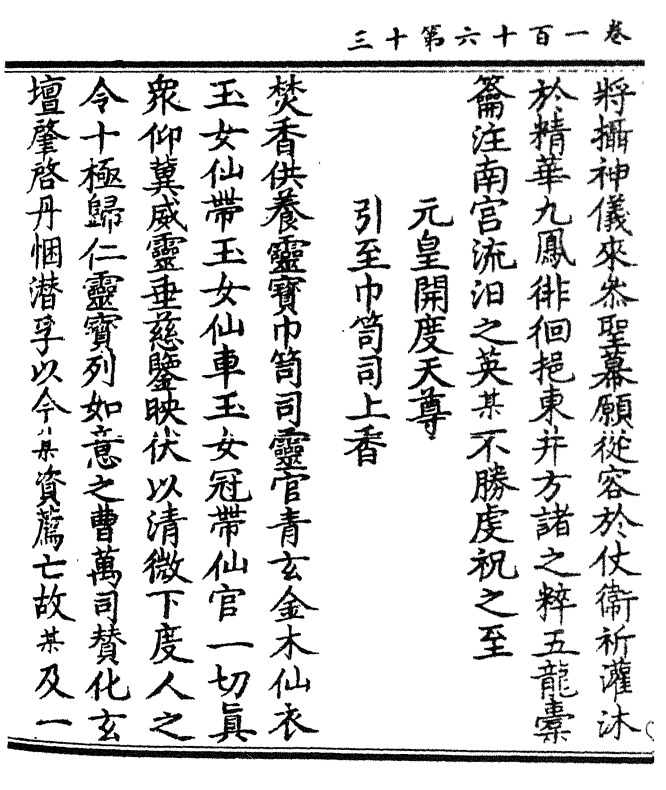 卷一百十六第十三
將攝神儀來叅聖幕願從容於仗衞祈灌沐
於精華九鳳徘徊挹東井方諸之粹五龍櫜
籥注南宫流汨之英某不勝虔祝之至
元皇開度天尊
引至巾笥司上香
焚香供養靈寶巾笥司靈官青玄金木仙衣
玉女仙帶玉女仙車玉女冠帶仙官一切眞
衆仰冀威靈垂慈鑒映伏以清微下度人之
令十極歸仁靈寶列如意之曹萬司贊化玄
壇肇啓丹悃潛孚以今某資薦亡故某及一